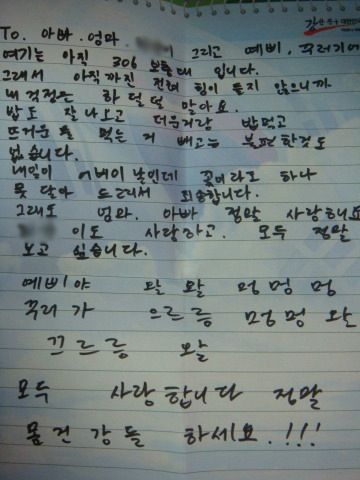 강한 친구 대한민국
To. 아빠. 엄마. 이 그리고 예삐, 뚜러기에
여기는 아직 306 보충대 입니다.
그래서 아직까진 전혀 힘이 들지 않으니까
내 걱정은 하덜덜 말아요.
밥도 잘 나오고 더운거랑 밥먹고
뜨거운 물 먹는 거 빼고는 불편한것도
없습니다.
내일이 어버이 날인데 꽃이라도 하나
못 달아 드려서 죄송합니다.
그래도 엄마. 아빠 정말 사랑해요
이도 사랑하고. 모두 정말
보고 싶습니다.
예삐야 왈 왈 멍 멍 멍
꾸러가 으르릉 멍멍 왈
끄르릉 왈
모두 사랑합니다 정말
몸 건강들 하세요.!!!